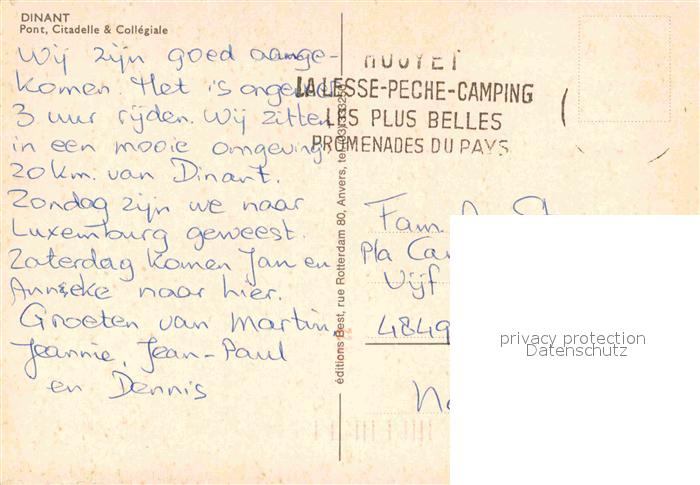 DINANT
Pont, Citadelle & Collégiale
Wij zijn goed aange-
komen. Het is ongeveer
3 uur rijden. Wij zitten
in een mooie omgeving,
20 km. van Dinant.
Zondag zijn we naar
Luxemburg geweest.
Zaterdag komen Jan en
Anneke naar hier.
Groeten van Martin,
Jeannie, Jean-Paul
en Dennis
éditions Best, rue Rotterdam 80, Anvers,
HOUYET
LA LESSE-PECHE-CAMPING
LES PLUS BELLES
PROMENADES DU PAYS
Fam.
Vijf
4849
privacy protection
Datenschutz